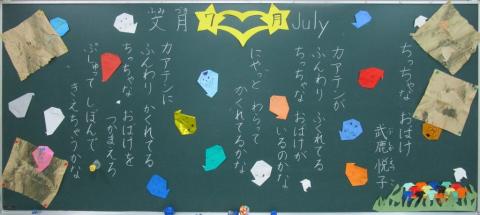 文月 7月 July
ふみ づき
ちっちゃな おばけ
武鹿悦子
カアテンが
ふんわり ふくれてる
ちっちゃな おばけが
いるのかな
にやっと わらって
かくれてるのかな
カアテンに
ふんわり かくれてる
ちっちゃな おばけを
つかまえろ
ぷしゅって しぼんで
きえちゃうかな